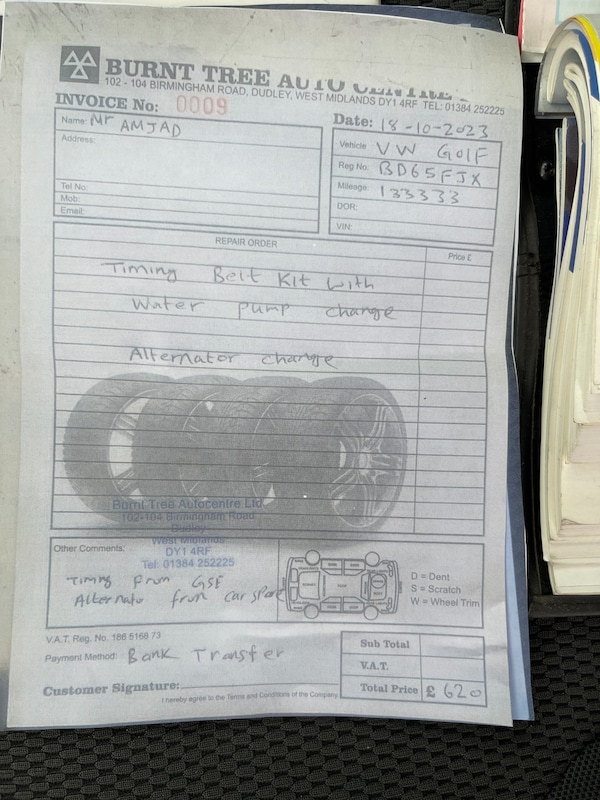 BURNT TREE AUTO CENTRE
102 - 104 BIRMINGHAM ROAD, DUDLEY, WEST MIDLANDS DY1 4RF TEL: 01384 252225
INVOICE No: 0009
Date: 18-10-2023
Name: Mr AMJAD
Address:
Tel No:
Mob:
Email:
Vehicle VW GOlF
Reg No. BD65FJX
Mileage: 133333
DOR:
VIN:
REPAIR ORDER
Price £
Timing Belt Kit with
Water pump change
Alternator change
Burnt Tree Autocentre Ltd
102-104 Birmingham Road
Dudley
West Midlands
DY1 4RF
Tel: 01384 252225
Other Comments:
Timing from GSF
Alternato from car spare
D = Dent
S = Scratch
W = Wheel Trim
V.A.T. Reg. No. 186 5168 73
Payment Method: Bank Transfer
Customer Signature:
I hereby agree to the Terms and Conditions of the Company
Sub Total
V.A.T.
Total Price £ 620